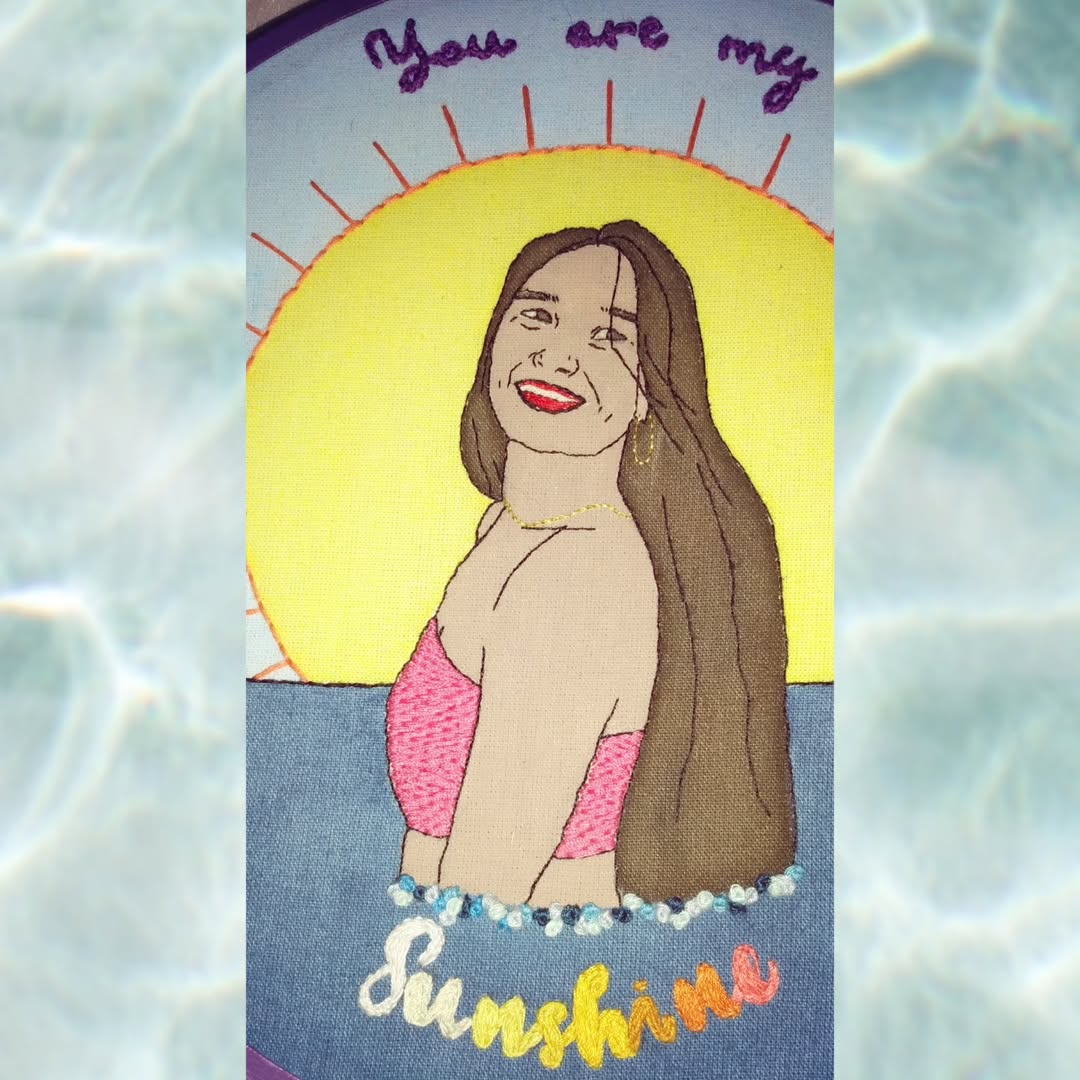 You are my
Sunshine